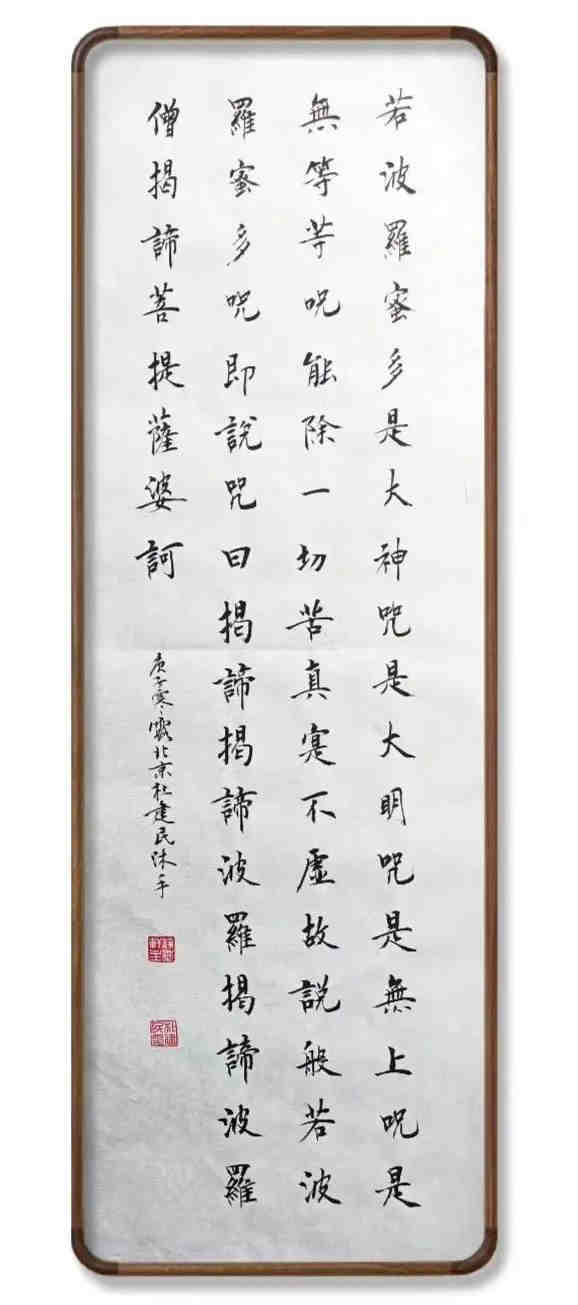 若波羅蜜多是大神咒是大明咒是無上咒是
無等等咒能除一切苦真寔不虛故説般若波
羅蜜多咒即說咒曰揭諦揭諦波羅揭諦波羅
僧揭諦菩提薩婆訶
庚子寒露北京杜建民沐手